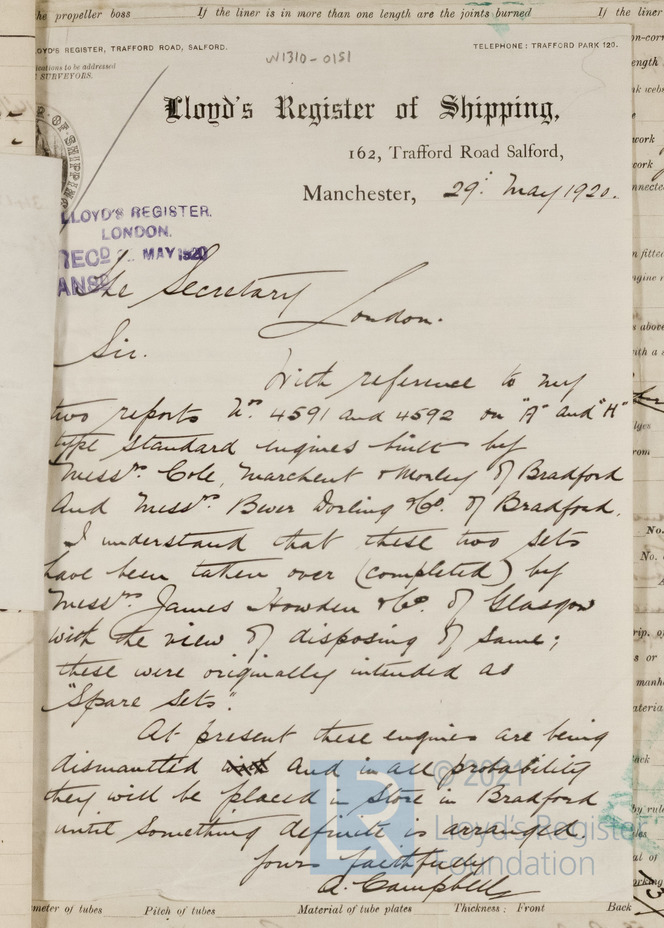 the propeller boss If the liner is in more than one length are the joints burned If the liner
LOYD'S REGISTER, TRAFFORD ROAD, SALFORD. TELEPHONE: TRAFFORD PARK 120.
to be addressed
SURVEYORS.
W1310-0151
Lloyd's Register of Shipping,
162, Trafford Road Salford,
Manchester, 29: May 1920.
LLOYD'S REGISTER.
LONDON.
REC'D MAY 1920
ANSD
The Secretary
London.
Sir.
With reference to my
two reports Nos. 4591 and 4592 on "A" and "H"
type standard engines built by
Messrs. Cole, Marchent & Morley of Bradford
and Messrs. Bever Dorling & Co. of Bradford.
I understand that these two sets
have been taken over (completed) by
Messrs. James Howden & Co. of Glasgow
with the view of disposing of same;
these were originally intended as
"Spare Sets".
At present these engines are being
dismantled and in all probability
they will be placed in store in Bradford
until something definite is arranged.
Yours faithfully
A. Campbell
© 2021
Lloyd's Register
Foundation
meter of tubes Pitch of tubes Material of tube plates Thickness: Front Back